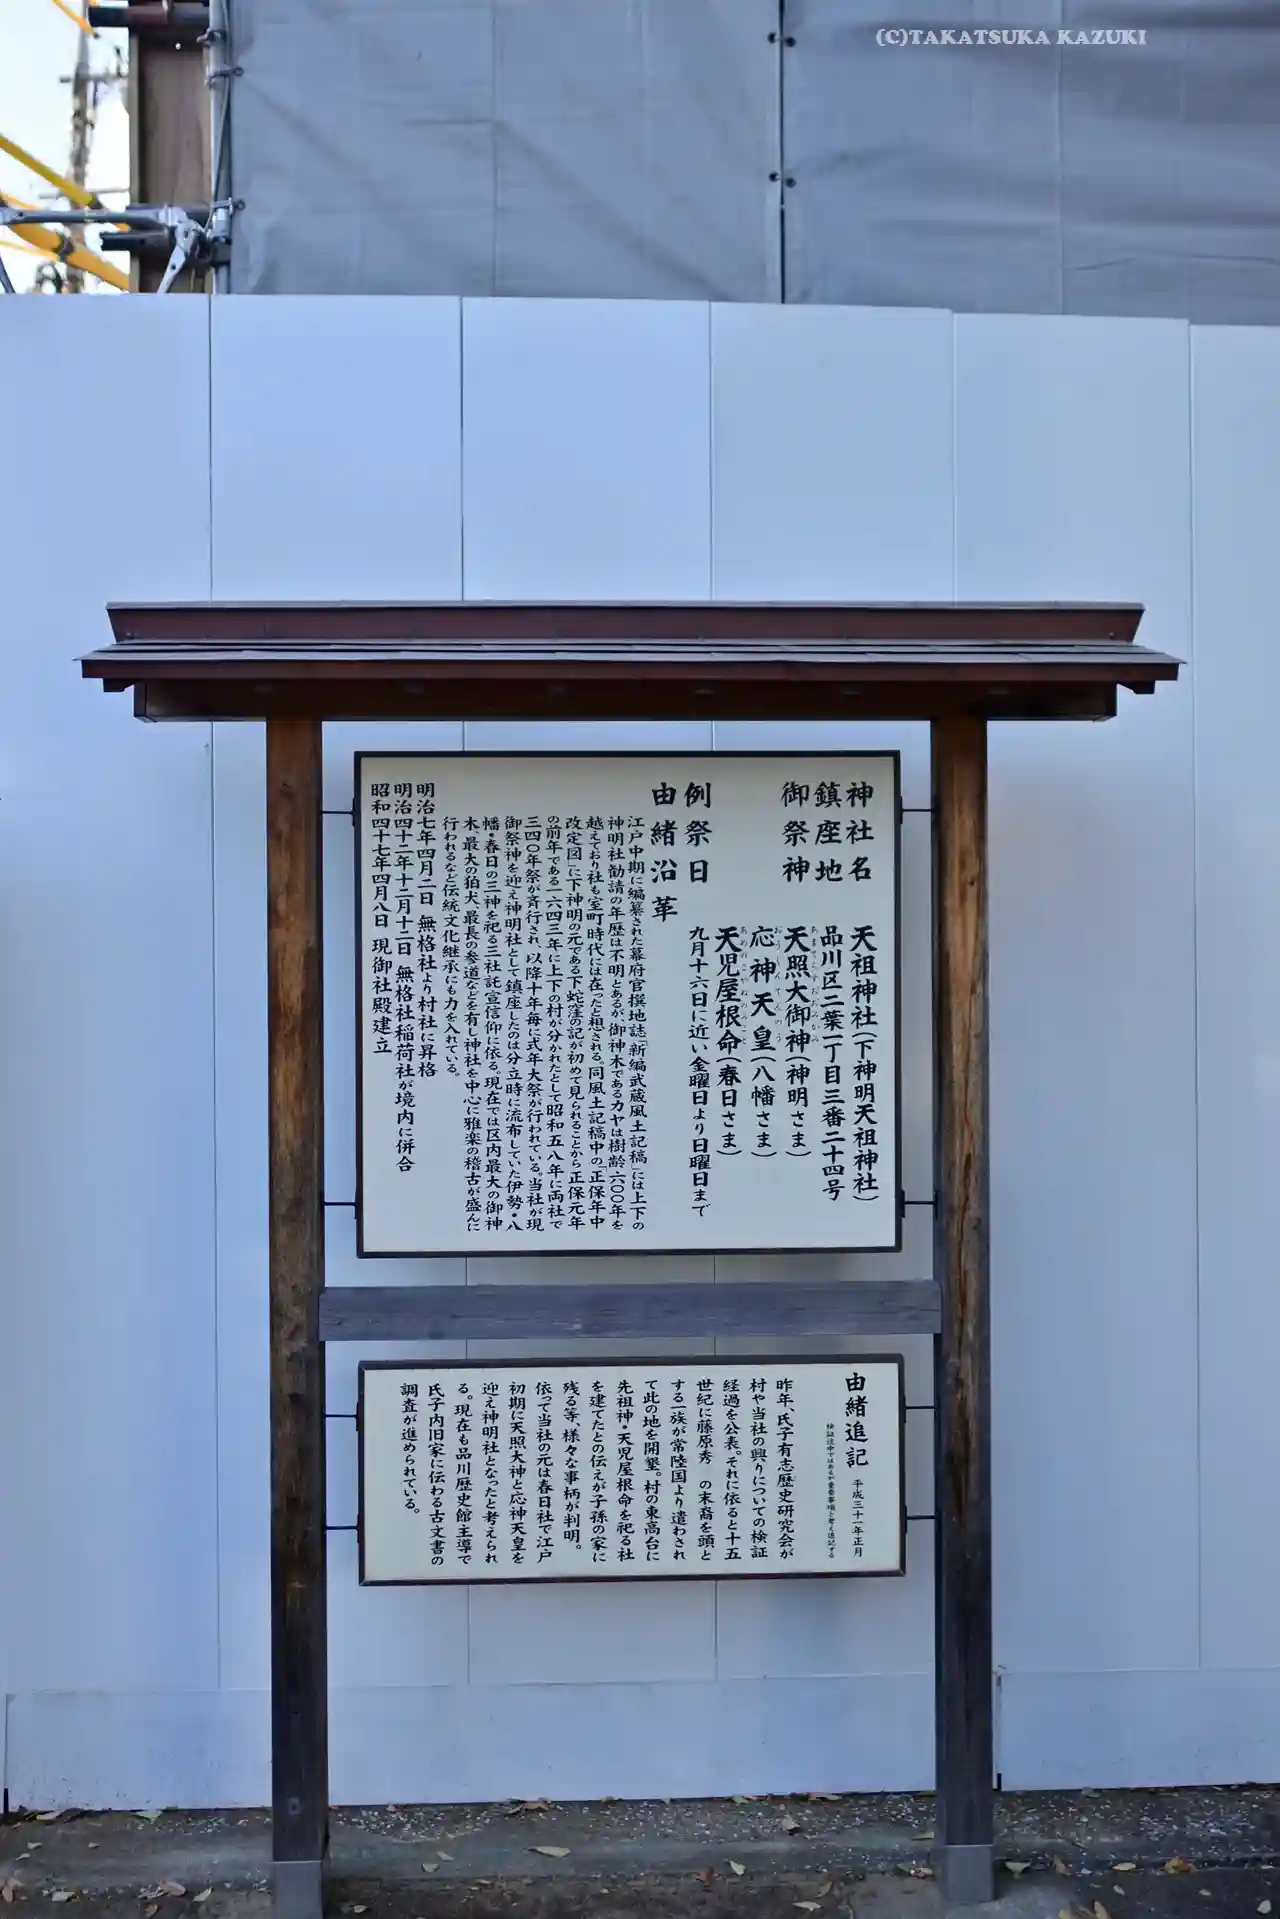 (C)TAKATSUKA KAZUKI
神社名 天祖神社(下神明天祖神社)
鎮座地 品川区二葉一丁目三番二十四号
御祭神 天照大御神(神明さま)
あまてらすおおみかみ
応神天皇(八幡さま)
おうじんてんのう
天児屋根命(春日さま)
あめのこやねのみこと
例祭日 九月十六日に近い金曜日より日曜日まで
由緒沿革
江戸中期に編纂された幕府官撰地誌「新編武蔵風土記稿」には上下の
神明社勧請の年歴は不明とあるが、御神木であるカヤは樹齢六〇〇年を
越えており社も室町時代には在ったと想される。同風土記稿中の「正保年中
改定図」に下神明の元である下蛇窪の記が初めて見られることから正保元年
の前年である一六四三年に上下の村が分かれたとして昭和五八年に両社で
三四〇年祭が斉行され、以降十年毎に式年大祭が行われている。当社が現
御祭神を迎え神明社として鎮座したのは分立時に流布していた伊勢・八
幡・春日の三神を祀る三社託宣信仰に依る。現在では区内最大の御神
木、最大の狛犬、最長の参道などを有し神社を中心に雅楽の稽古が盛んに
行われるなど伝統文化継承にも力を入れている。
明治七年四月二日 無格社より村社に昇格
明治四十二年十二月十二日 無格社稲荷社が境内に併合
昭和四十七年四月八日 現御社殿建立
由緒追記 平成三十一年正月
検証途中ではあるが重要事項と考え追記する
昨年、氏子有志歴史研究会が
村や当社の興りについての検証
経過を公表。それに依ると十五
世紀に藤原秀 の末裔を頭と
する一族が常陸国より遣わされ
て此の地を開墾。村の東高台に
先祖神・天児屋根命を祀る社
を建てたとの伝えが子孫の家に
残る等、様々な事柄が判明。
依って当社の元は春日社で江戸
初期に天照大神と応神天皇を
迎え神明社となったと考えられ
る。現在も品川歴史館主導で
氏子内旧家に伝わる古文書の
調査が進められている。